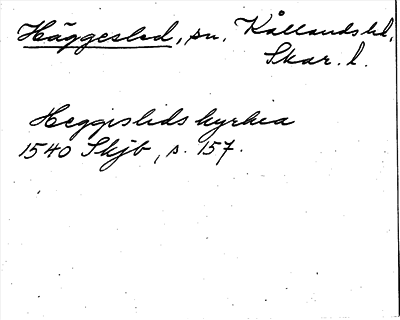 Häggesled, sn. Kållands hd,
Skar. l.
Heggislids kyrkia
1540 Skjb, s. 157.